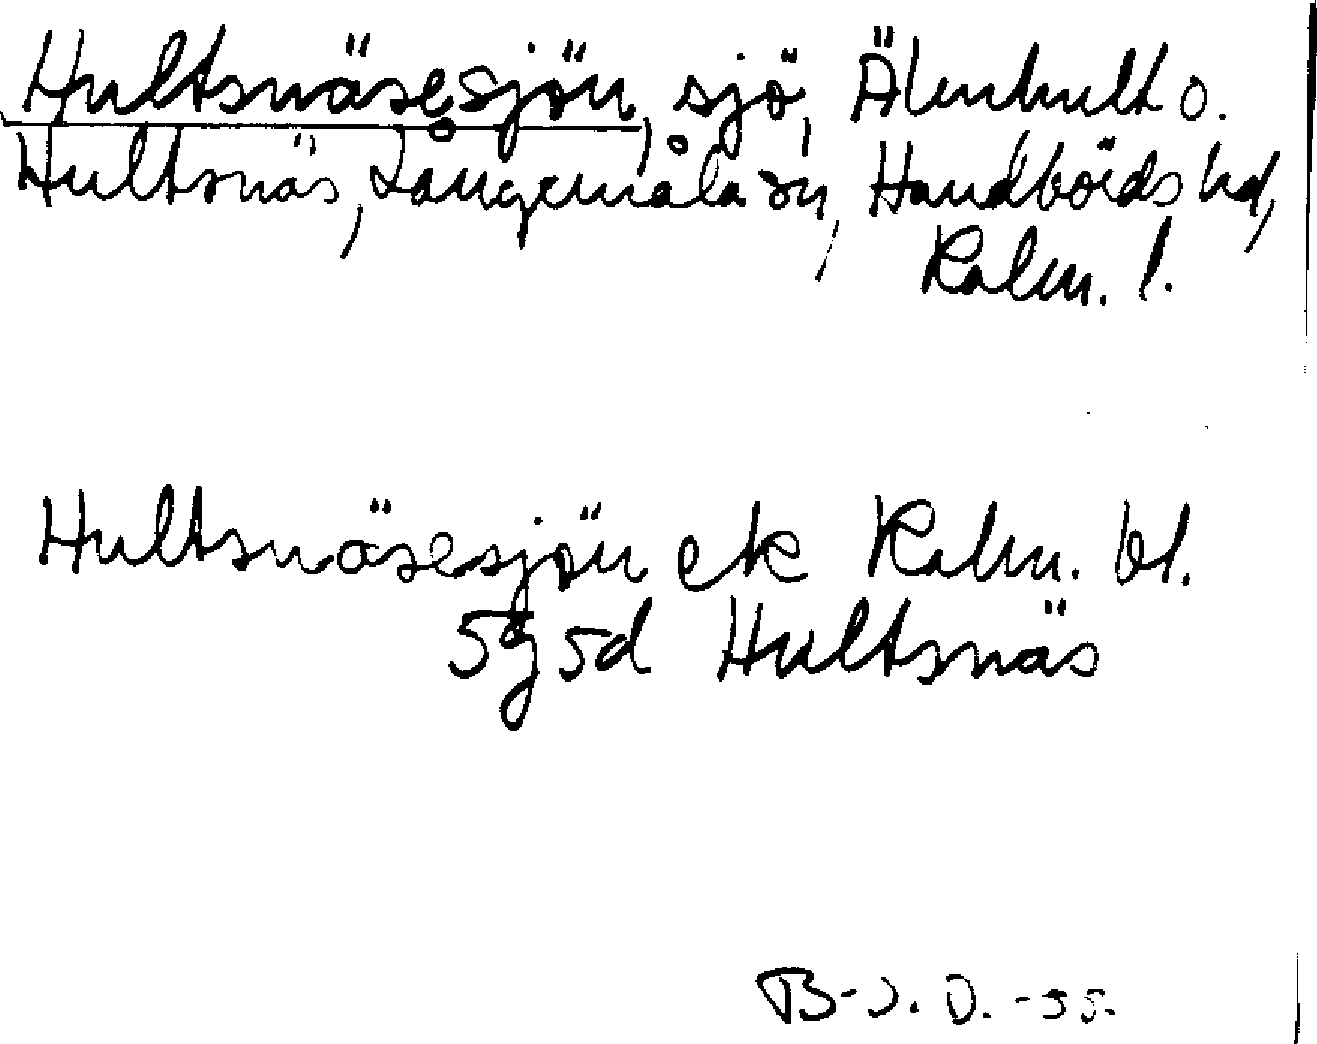 Hultsnäsesjön, sjö, Älmhult o.
Hultsnäs, Långemåla sn, Handbörds hd,
Kalm. l.
Hultsnäsesjön ek Kalm. bl.
5g5d Hultsnäs
B-J. O. -55.